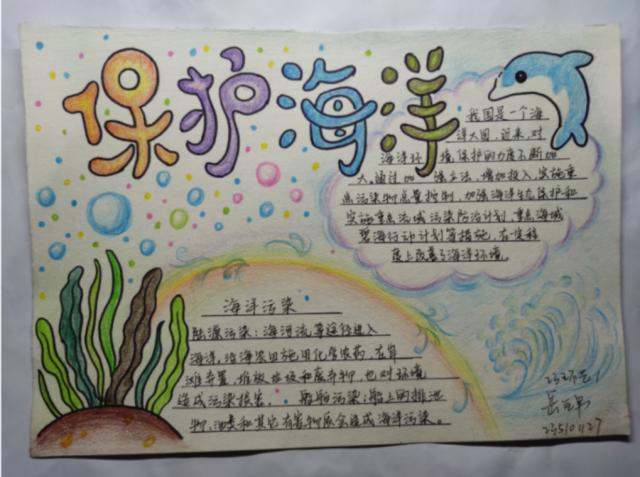 保护海洋
我国是一个海
洋大国,近来,对
海洋环境保护的力度不断加
大。通过加强立法,增加投入,实施重
点污染物总量控制,加强海洋生态保护和
实施重点流域污染防治计划,重点海域
碧海行动计划等措施,在一定程
度上改善了海洋环境。
海洋污染
陆源污染:海河流等途径进入
海洋,沿海农田施用化学农药,在岸
滩弃置、堆放垃圾和废弃物,也对环境
造成污染损害。 船舶污染:船上的排泄
物、油类和其它有害物质会造成海洋污染。